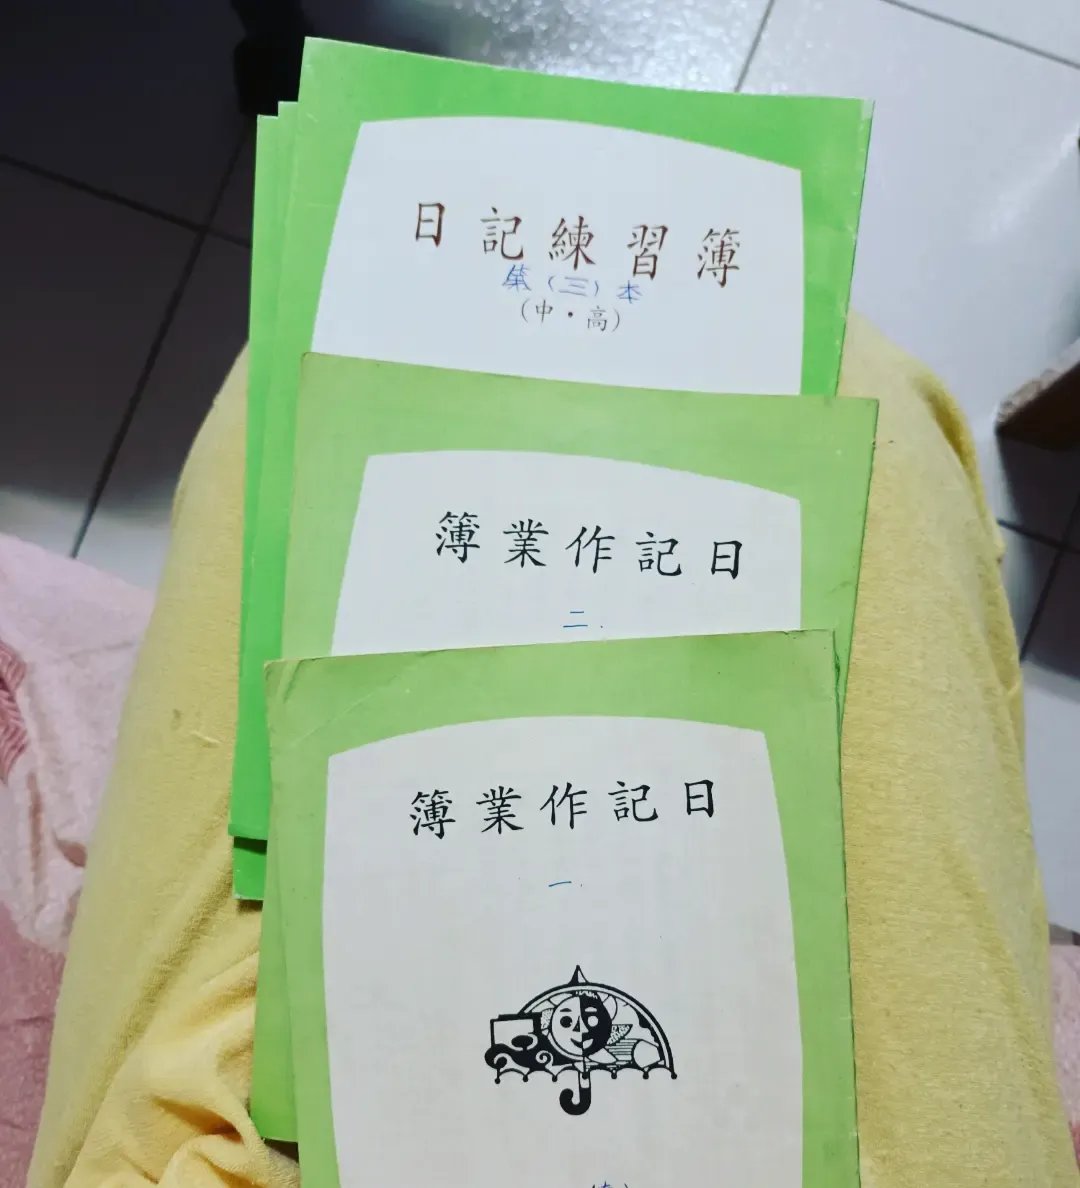 日記練習簿
第(三)本
(中・高)
日記作業簿
二.
日記作業簿
一.